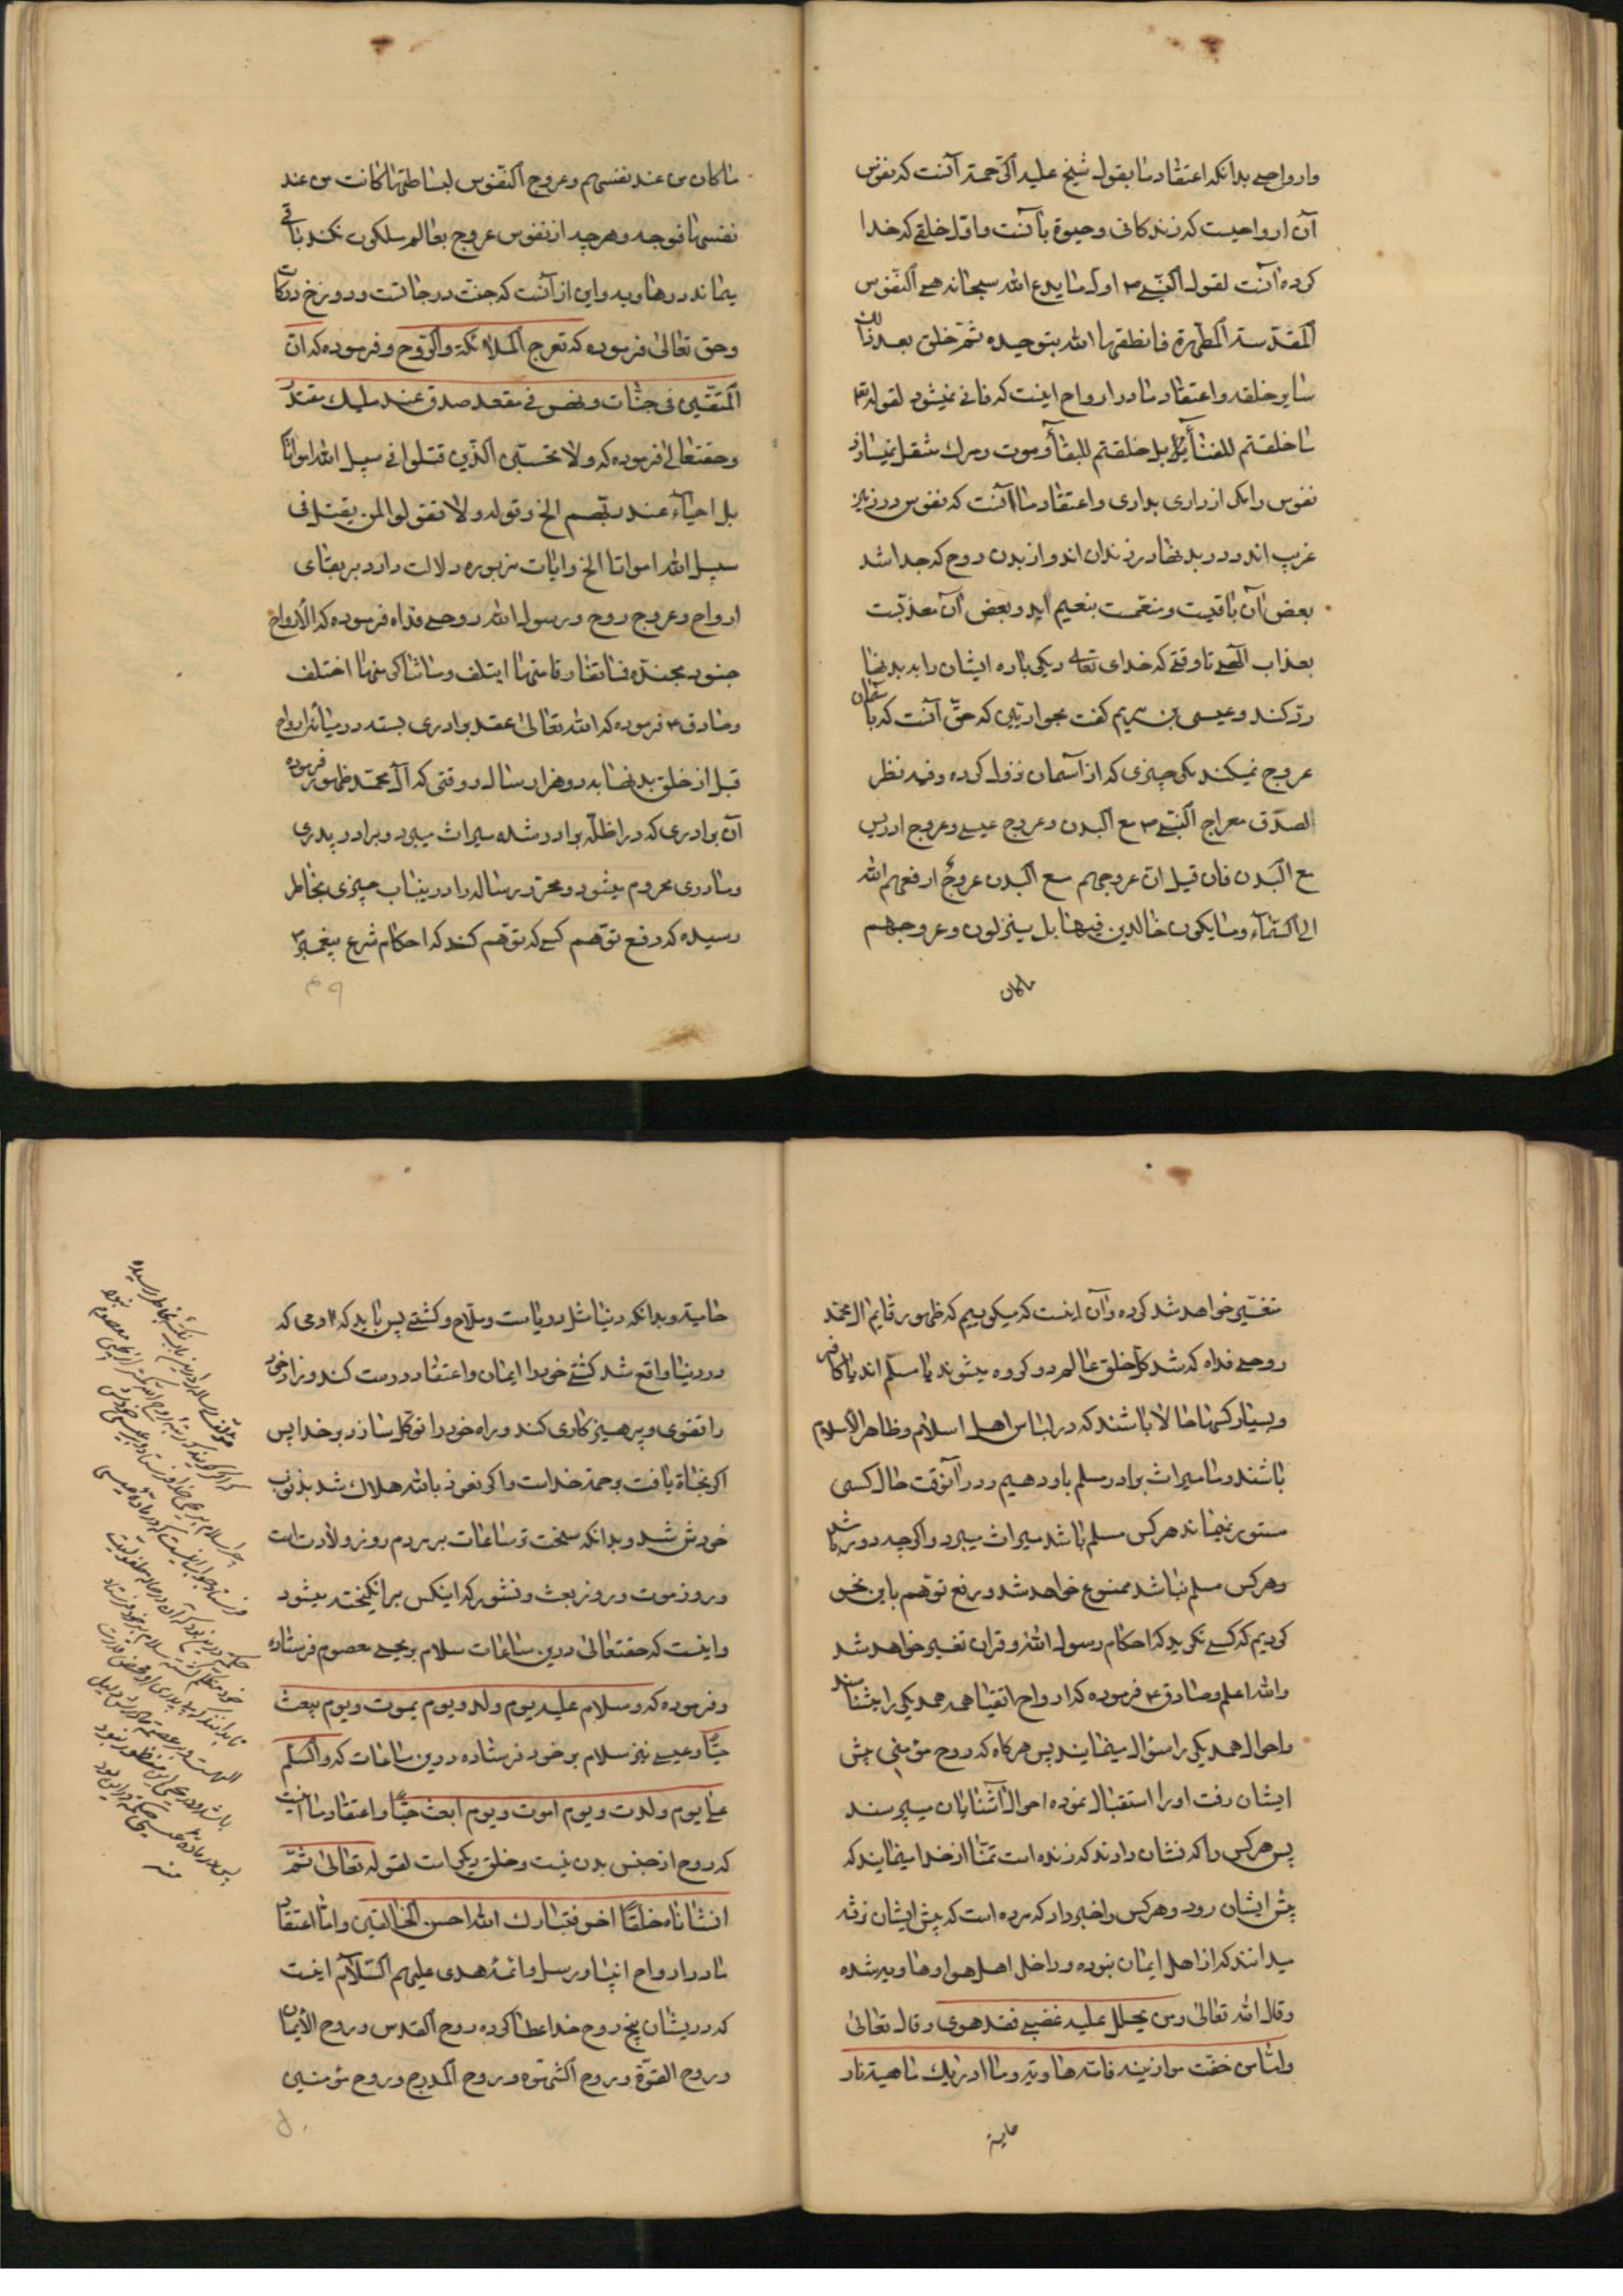 وارواحی بدانکه اعتقاد ما بقول شیخ علیه الرّحمة آنست که نفوس
آن ارواحیست که زندکانی وحیوة بآنست واوّل خلقی که خدا
کرده آنست لقول النّبی ص اوّل ما ابدع الله سبحانه هی النّفوس
المقدّسة المطهّرة فانطقها الله بتوحیده ثمّ خلق بعد ذلك
سایر خلقه واعتقاد ما در ارواح اینست که فانی نمیشود لقوله ع
ما خلقتم للفنآء بل خلقتم للبقآء وموت ومرك منتقل میسازد
نفوس را از داری بداری واعتقاد ما آنست که نفوس در زمین
غریب اند ودر بدنها در زندان اند واز بدن روح که جدا شد
بعض آن باقیست ومنعّمست بنعیم ابد وبعض آن معذّبست
بعذاب الهی تا وقتی که خدای تعالی دیکی باره ایشان را به بدنها
ردّ کند وعیسی بن مریم کفت بحواریین که حقّ آنست که باسمان
عروج نمیکند مکر چیزی که از آسمان نزول کرده وفیه نظر
لصدق معراج النّبی ص مع البدن وعروج عیسی وعروج ادریس
مع البدن فان قیل انّ عروجهم مع البدن عروج ارفعهم الله
الی السّمآء وما یکون خالدین فیها بل ینزلون وعروجهم
ماکان
ماکان من عند نفسهم وعروج النّفوس لبساطتها کانت من عند
نفسها فوجه وهرچه از نفوس عروج بعالم ملکوت نکند باقی
بماند در هاویه واین از آنست که جنّت درجاتست ودوزخ درکات
وحق تعالی فرموده که تعرج الملائکة والرّوح وفرموده که انّ
المتّقین فی جنّات ونهر فی مقعد صدق عند ملیك مقتدر
وحقتعالی فرموده که ولا تحسبنّ الّذین قتلوا فی سبیل الله امواتاً
بل احیآء عند ربّهم الخ وقوله ولا تقولوا لمن یقتل فی
سبیل الله امواتا الخ وایات مزبوره دلالت دارد بربقای
ارواح وعروج روح ورسول الله روحی فداه فرموده که الارواح
جنود مجنّدة فما تعارف منها ایتلف وما تناکر منها اختلف
وصادق ع فرموده که الله تعالی عقد برادری بسته در میانه ارواح
قبل از خلق بدنها بدو هزار سال ووقتی که آل محمّد ظهور فرموده
آن برادری که در اظلّه برادر شده میراث میبرد وبرادر پدری
ومادری محروم میشود ومحرّر رساله را در ینباب چیزی بخاطر
رسیده که رفع توهّم کسی که توهّم کند که احکام شرع پیغمبر ص
۴۹
تغییر خواهد شد کرده وآن اینست که میکوییم که ظهور قایم ال محمّد
روحی فداه که شد کلّ خلق عالم دو کروه میشوند یا مسلم اند یا کافر
وبسیار کسها حالا باشند که در لباس اهل اسلام وظاهر الاسلام
باشند وما میراث برادر مسلم باو دهیم ودر آنوقت حال کسی
مستور نمیماند هرکس مسلم باشد میراث میبرد واکرچه دور باشد
وهرکس مسلم نباشد ممنوع خواهد شد ورفع توهّم باین نحو
کردیم که کسی نکوید که احکام رسول الله وقران تغییر خواهد شد
والله اعلم وصادق ع فرموده که ارواح اتقیا همه همدیکر را میشناسند
واحوال همدیکر را سؤال مینمایند پس هرکاه که روح مؤمنی پیش
ایشان رفت اورا استقبال نموده احوال آشنایان میپرسند
پس هرکس را که نشان دادند که زنده است تمنّا از خدا مینمایند که
پیش ایشان رود وهرکس را خبر داد که مرده است که پیش ایشان نرفته
میدانند که از اهل ایمان نبوده وداخل اهل هوا وهاویه شده
وقال الله تعالی ومن یحلل علیه غضبی فقد هوی وقال تعالی
وامّا من خفّت موازینه فامّه هاویه وما ادریك ماهیه نار
حامیة
حامیة وبدانکه دنیا مثل دریاست وملّاح وکشتی پس باید که ادمی که
در دنیا واقع شد کشتی خود را ایمان واعتقاد درست کند وزاد خود
را تقوی وپرهیزکاری کند وراه خود را توکّل سازد برخدا پس
اکر نجاة یافت برحمة خداست واکر نعوذ بالله هلاك شد بذنوب
خودش شد وبدانکه سخت تر ساعات بر مردم روز ولادت است
وروز موت وروز بعث ونشور که اینکس برانکیخته میشود
واینست که حقتعالی درین ساعات سلام بریحیی معصوم فرستاده
وفرموده که وسلام علیه یوم ولد ویوم یموت ویوم یبعث
حیّاً وعیسی نیز سلام بر خود فرستاده درین ساعات که والسّلم
علیّ یوم ولدت ویوم اموت ویوم ابعث حیّاً واعتقاد ما اینست
که روح از جنس بدن نیست وخلق دیکر است لقوله تعالی ثمّ
انشاناه خلقاً اخر فتبارك الله احسن الخالقین وامّا اعتقاد
ما در ارواح انبیا ورسل وائمّه هدی علیهم السّلام اینست
که در یشان پنج روح خدا عطا کرده روح القدس وروح الایمان
وروح القوّة وروح الشّهوة وروح المدرج وروح مؤمنین
۵۰